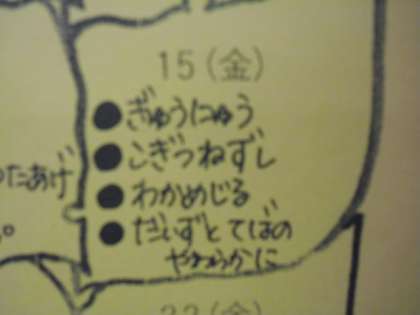 15(金)
●ぎゅうにゅう
●こぎつねずし
●わかめじる
●だいずとてばの
やわらかに
たあげ
22(金)